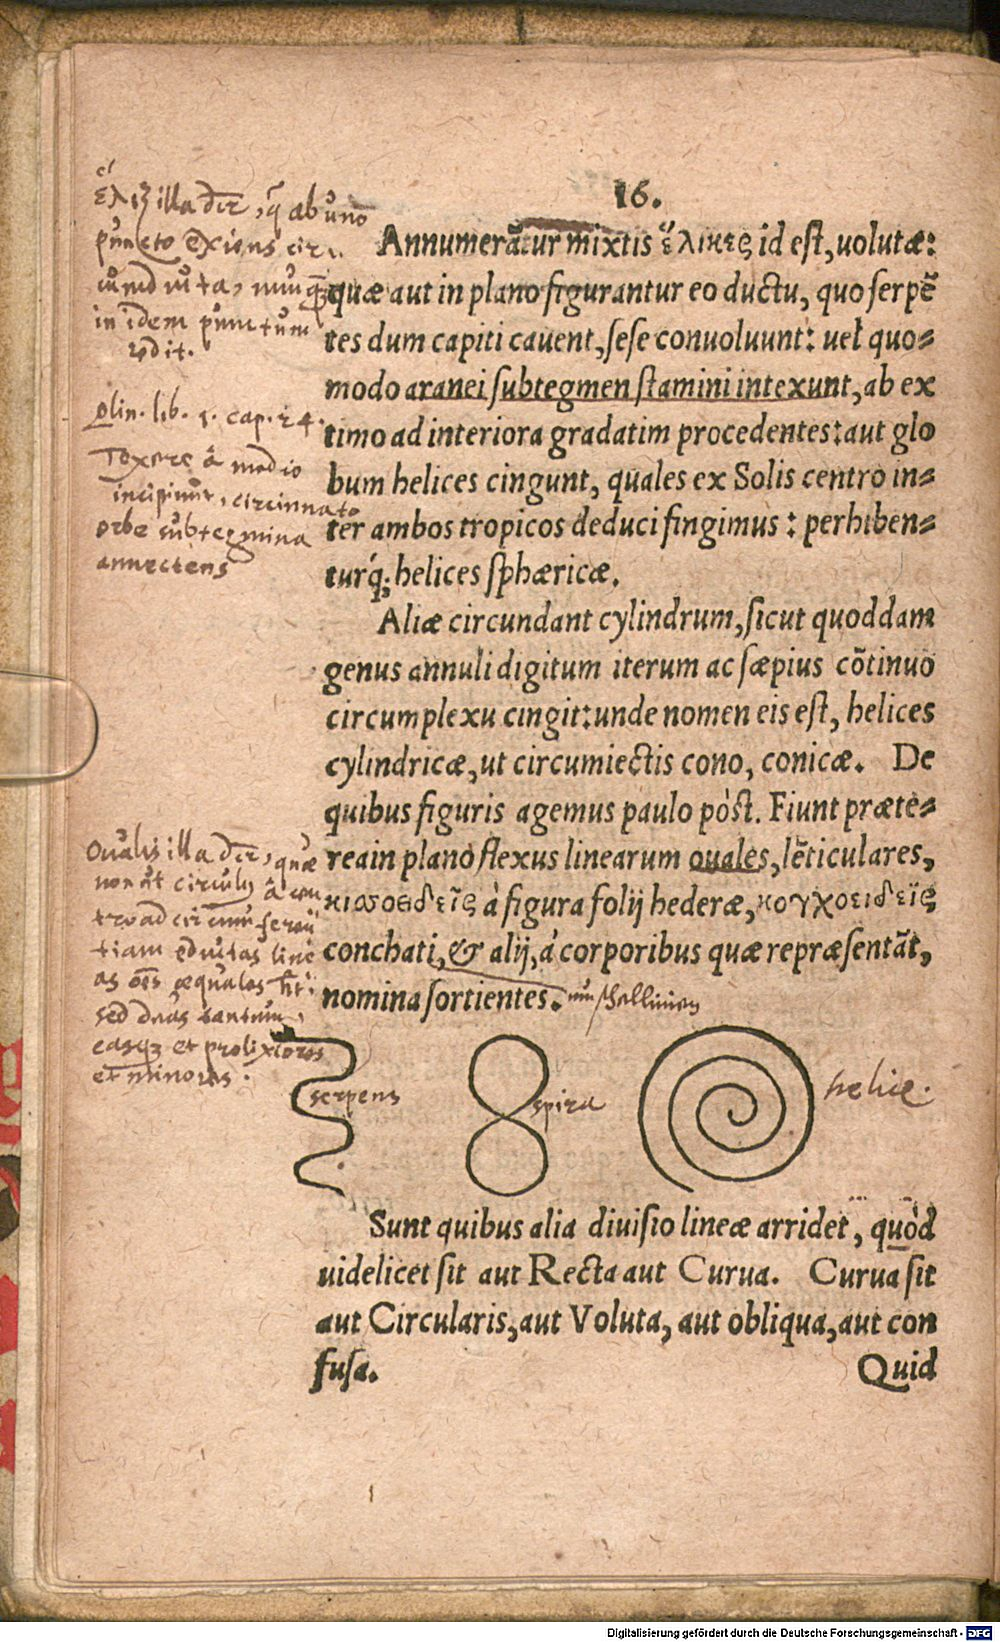 16.
Annumerãtur mixtis ἕλικες id est, uolutæ:
quæ aut in plano figurantur eo ductu, quo serpẽ
tes dum capiti cauent, sese conuoluunt: uel quo-
modo aranei subtegmen stamini intexunt, ab ex
timo ad interiora gradatim procedentes: aut glo
bum helices cingunt, quales ex Solis centro in-
ter ambos tropicos deduci fingimus: perhiben-
turq́; helices sphæricæ.
Aliæ circundant cylindrum, sicut quoddam
genus annuli digitum iterum ac sæpius cõtinuo
circumplexu cingit: unde nomen eis est, helices
cylindricæ, ut circumiectis cono, conicæ. De
quibus figuris agemus paulo pòst. Fiunt præte-
rea in plano flexus linearum ouales, lẽticulares,
κισσοειδεῖς à figura folij hederæ, κογχοειδεῖς
conchati, & alij, à corporibus quæ repræsentãt,
nomina sortientes.
ἕλιξ illa dr̃, q̃ ab uno
puncto exiens cir
in idem punctum
redit.
Plin. lib. 1. cap. 24.
Texere à medio
incipiunt, circinnato
orbe subtegmina
annectens
Oualis illa dr̃, quæ
non ut circulus à cen
tro ad circumferen
tiam eductas line
as oẽs æquales
sed duas tantum,
easq; et prolixiores
et minores.
serpens
spira
helice.
Sunt quibus alia diuisio lineæ arridet, quòd
uidelicet sit aut Recta aut Curua. Curua sit
aut Circularis, aut Voluta, aut obliqua, aut con
fusa.
Quid
Digitalisierung gefördert durch die Deutsche Forschungsgemeinschaft - DFG